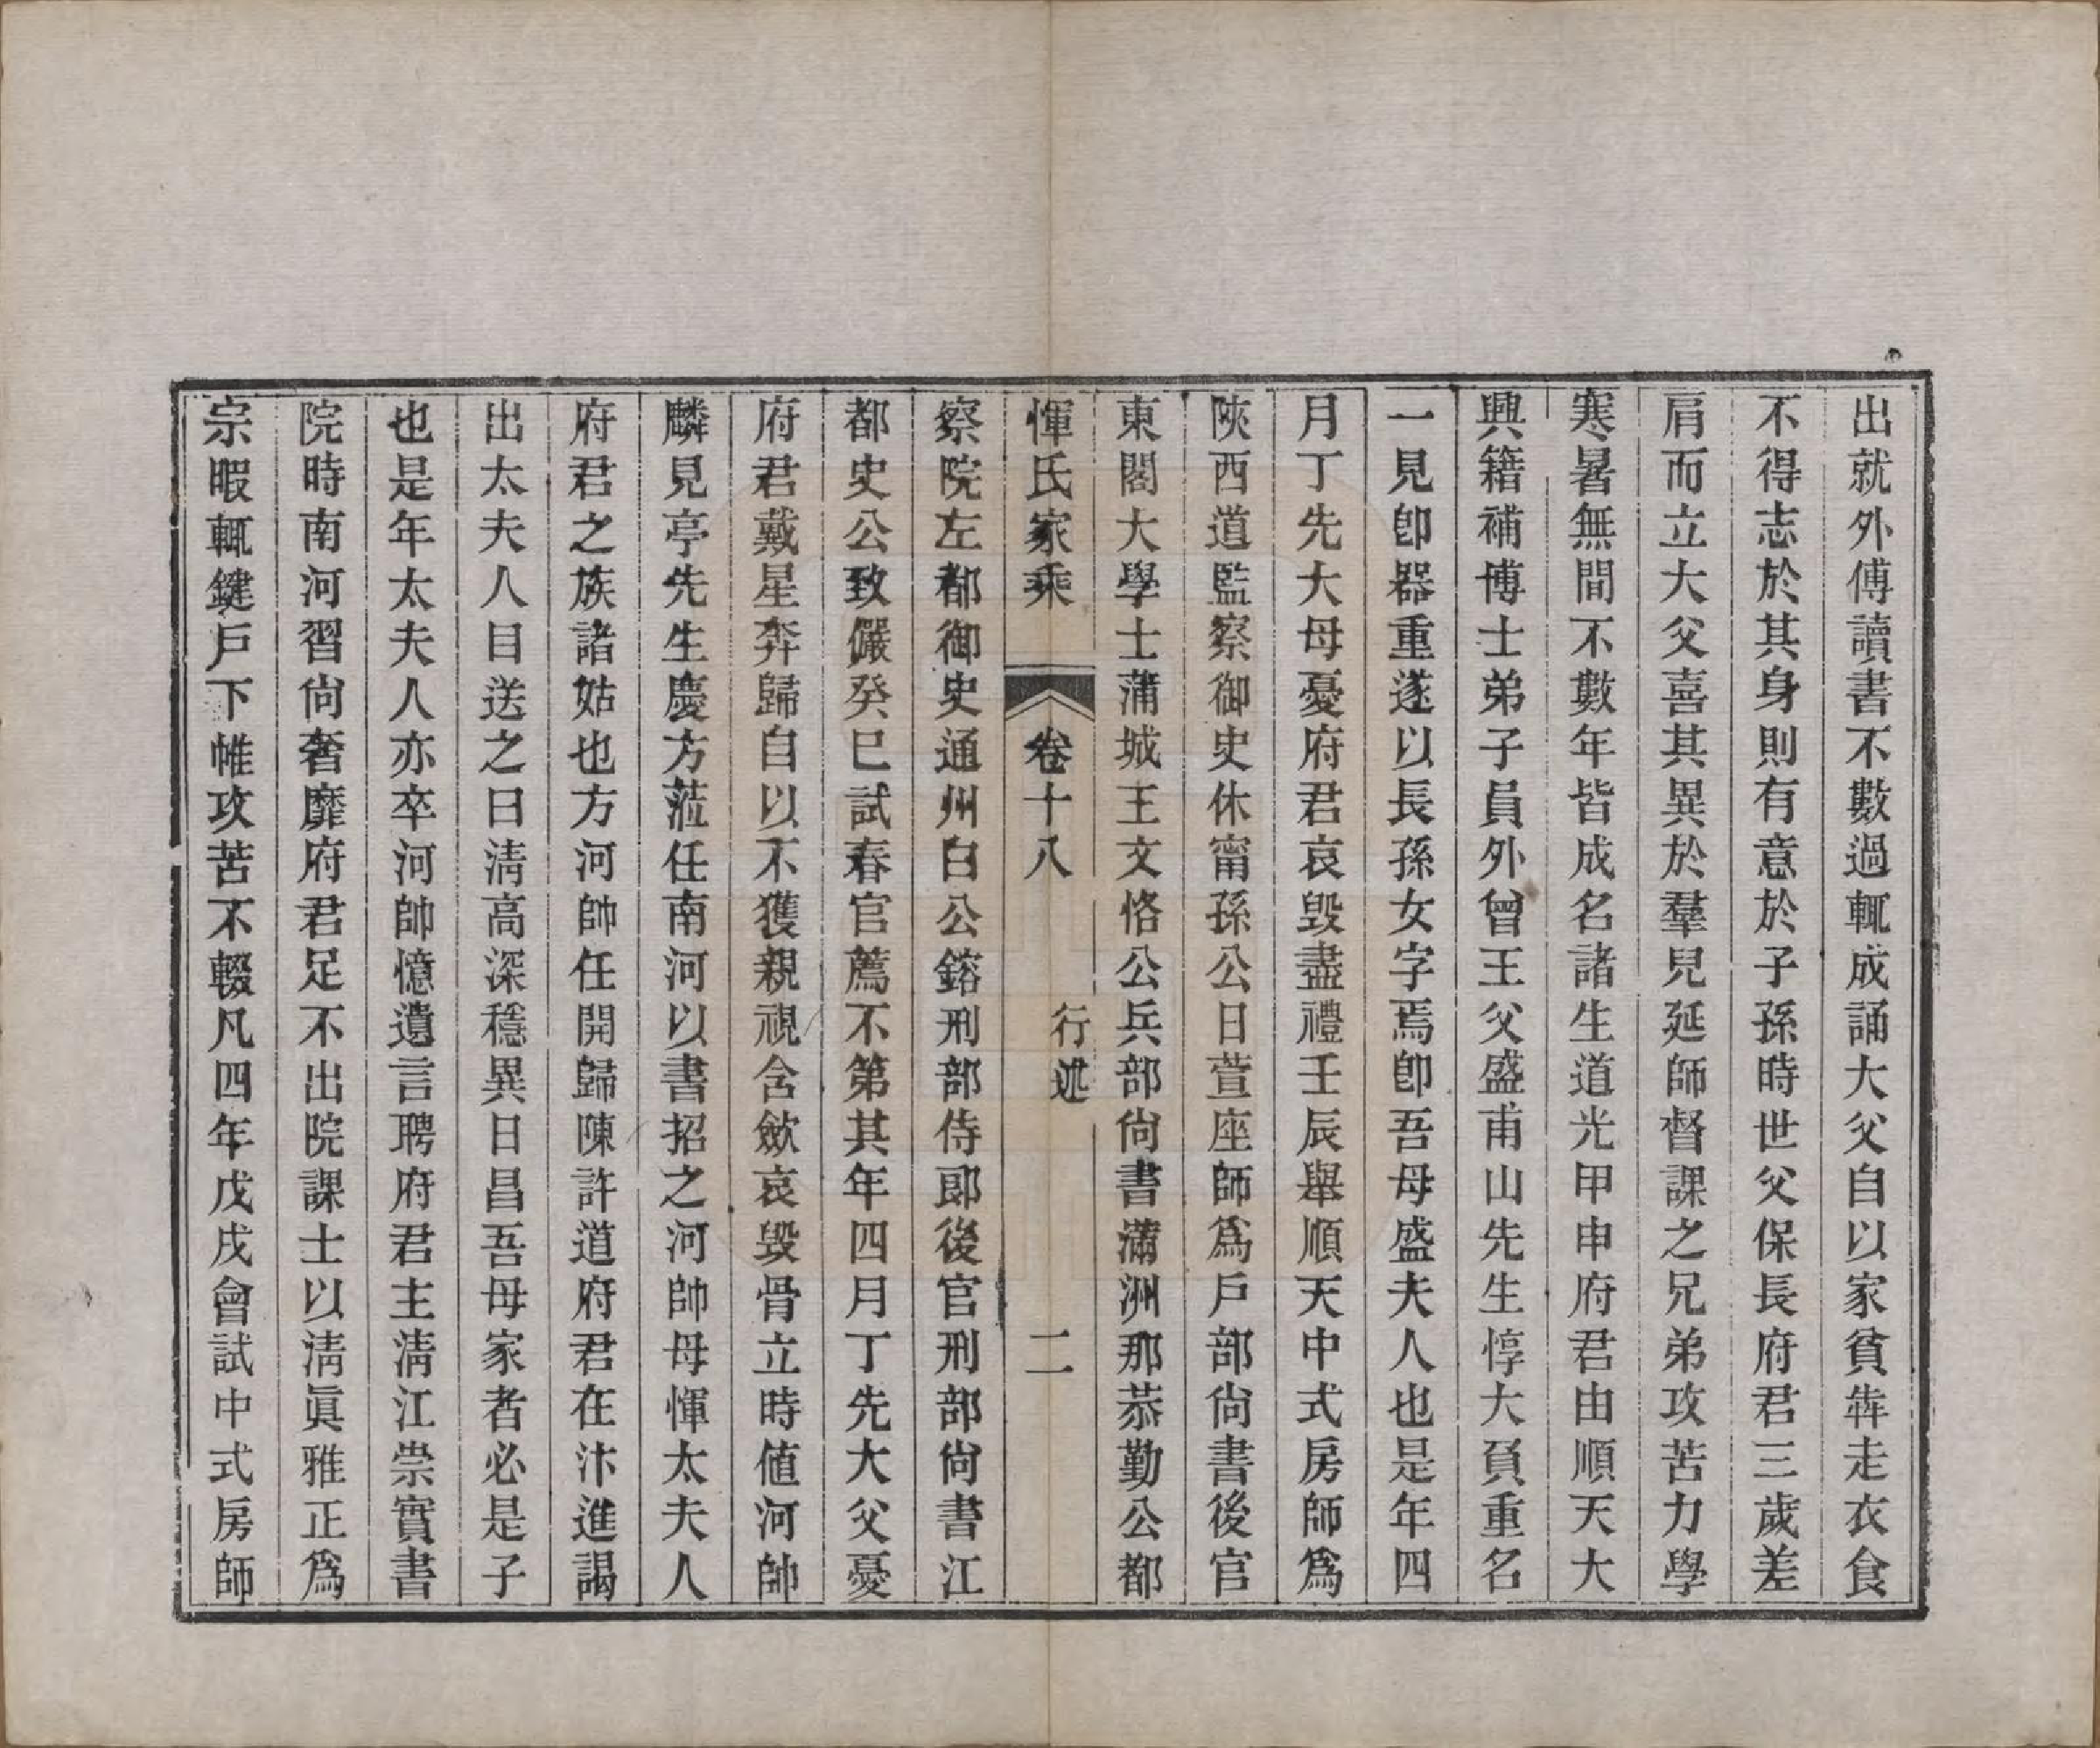 出就外傅讀書不數過輒成誦大父自以家貧犇走衣食
不得志於其身則有意於子孫時世父保長府君三歲差
肩而立大父喜其異於羣兒延師督課之兄弟攻苦力學
寒暑無間不數年皆成名諸生道光甲申府君由順天大
興籍補博士弟子員外曾王父盛甫山先生惇大負重名
一見卽器重遂以長孫女字焉卽吾母盛夫人也是年四
月丁先大母憂府君哀毀盡禮壬辰舉順天中式房師爲
陝西道監察御史休甯孫公日萱座師爲戶部尚書後官
東閣大學士蒲城王文恪公兵部尚書滿洲那恭勤公都
惲氏家乘 卷十八 行述 二
察院左都御史通州白公鎔刑部侍郎後官刑部尚書江
都史公致儼癸巳試春官薦不第其年四月丁先大父憂
府君戴星奔歸自以不獲親視含斂哀毀骨立時値河帥
麟見亭先生慶方蒞任南河以書招之河帥母惲太夫人
府君之族諸姑也方河帥任開歸陳許道府君在汴進謁
出太夫人目送之曰淸高深穩異日昌吾母家者必是子
也是年太夫人亦卒河帥憶遺言聘府君主淸江崇實書
院時南河習尚奢靡府君足不出院課士以淸眞雅正爲
宗暇輒鍵戶下帷攻苦不輟凡四年戊戌會試中式房師